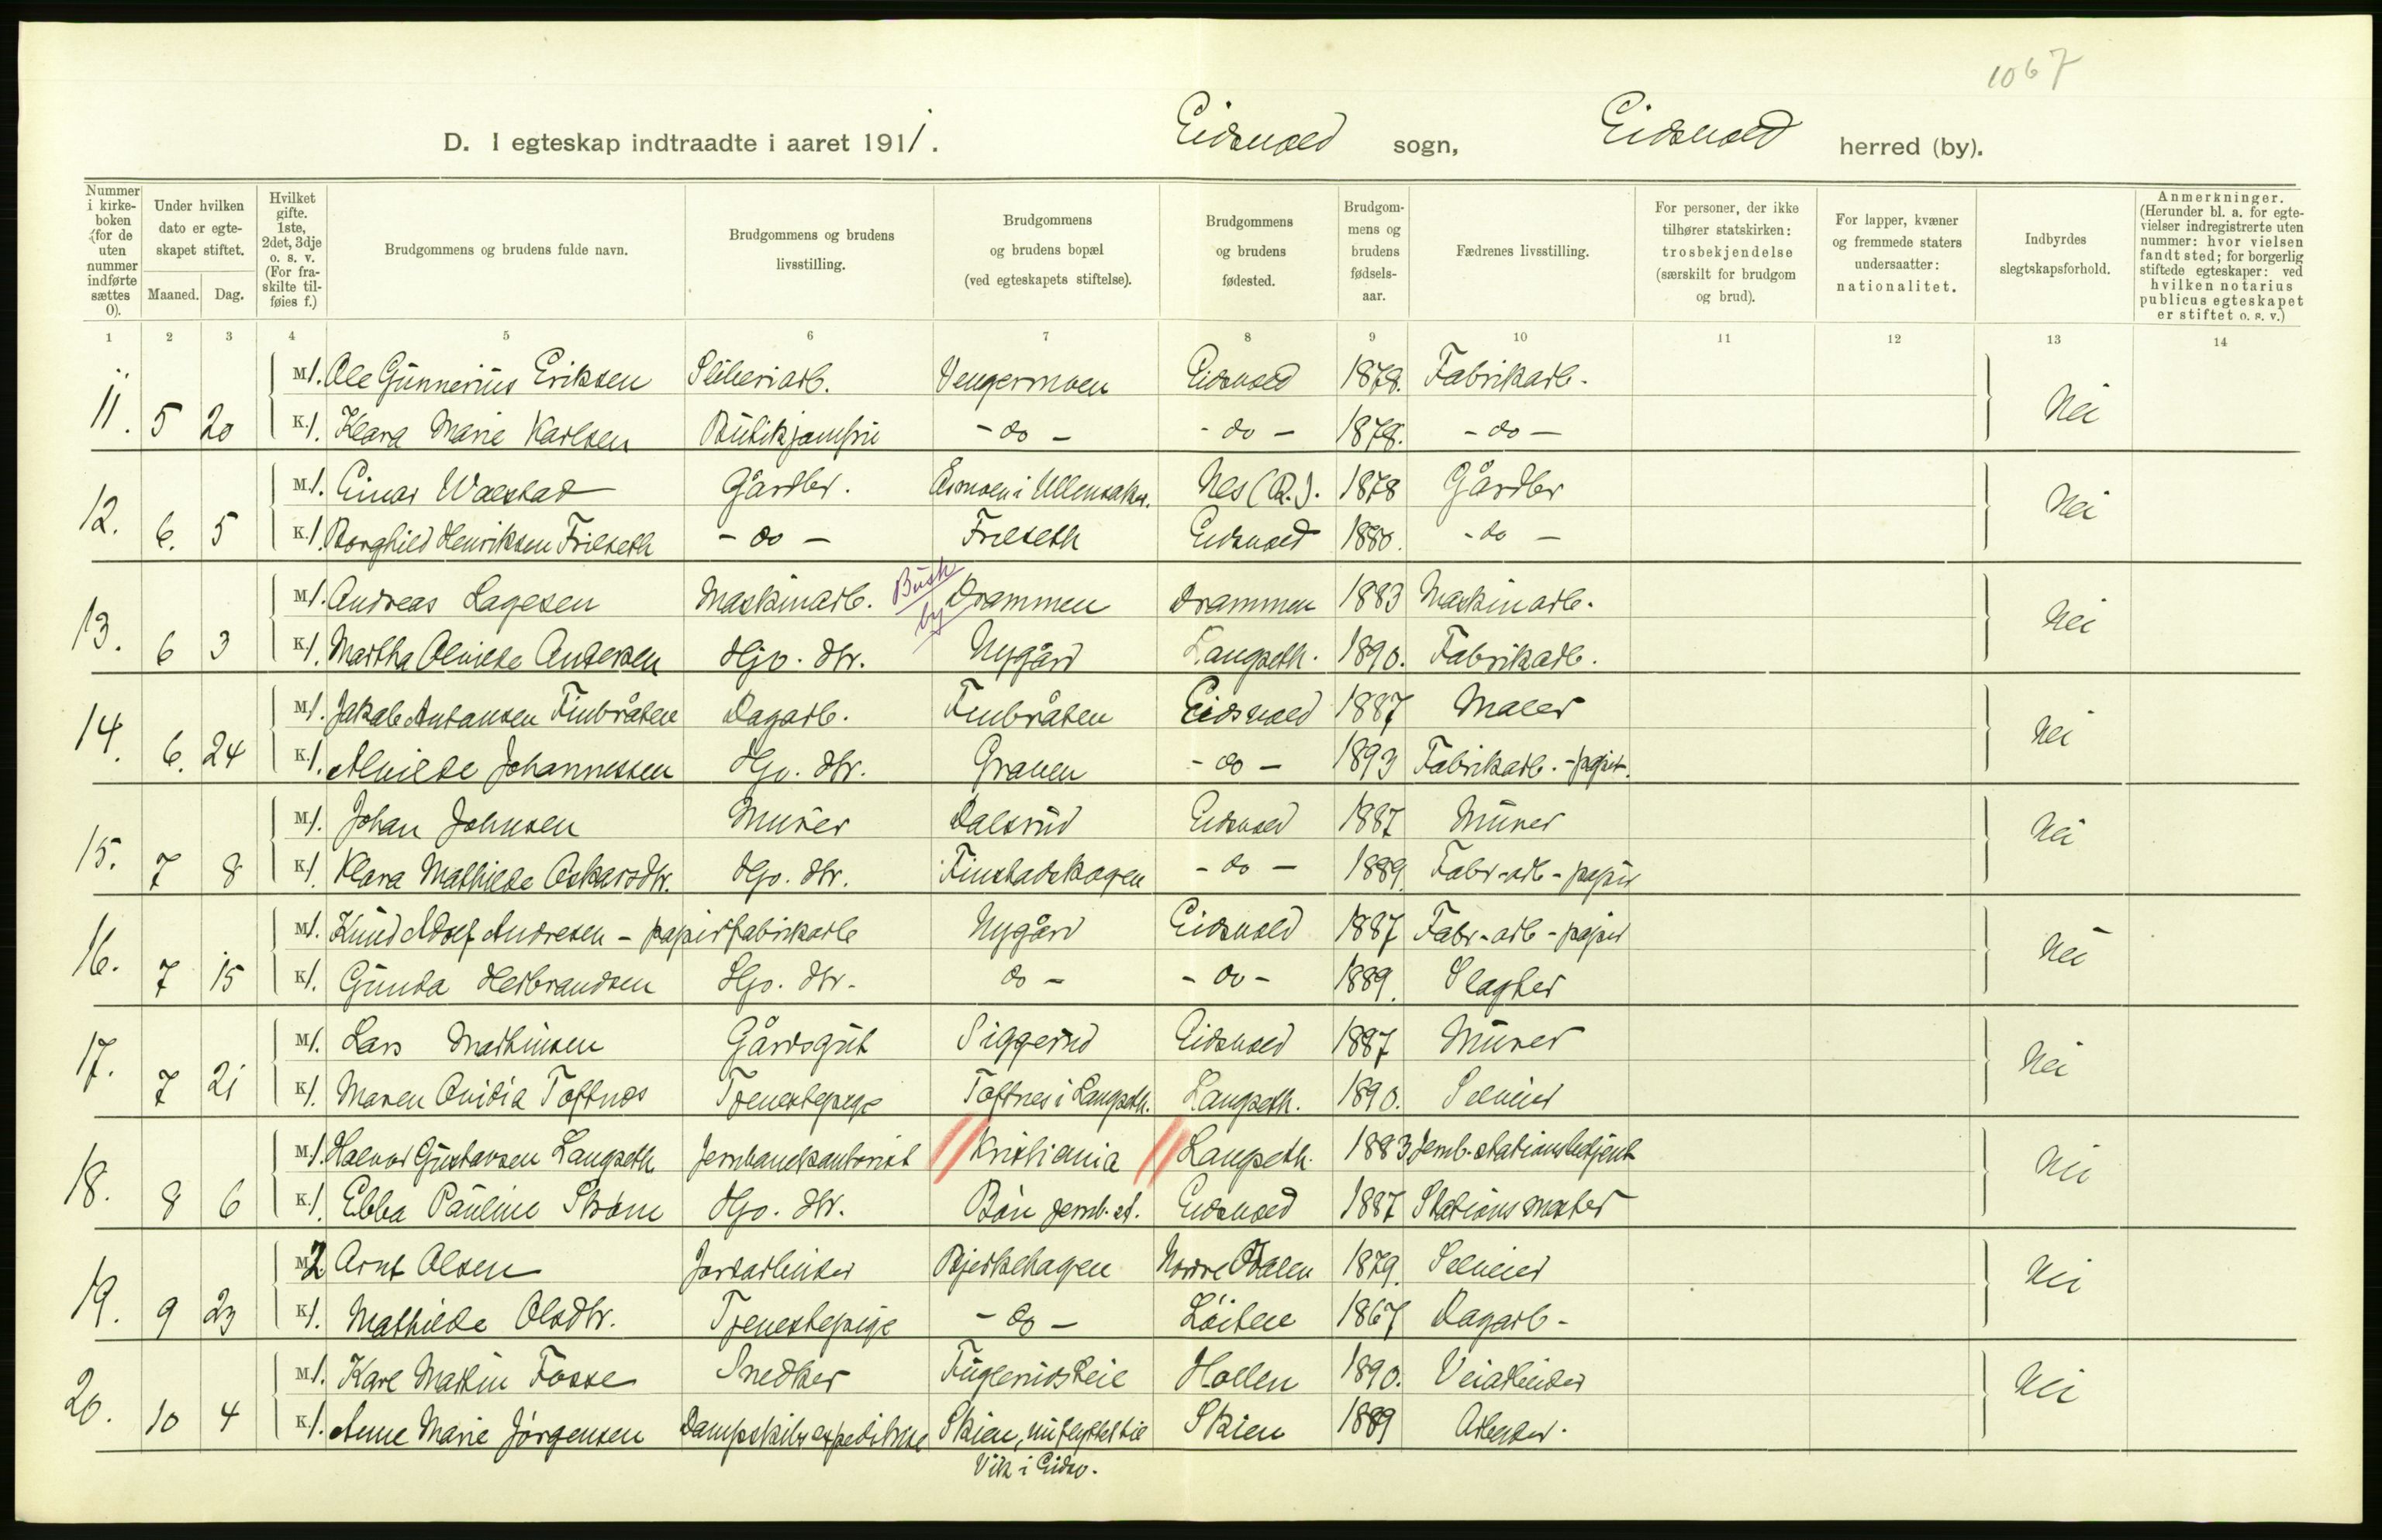 1067
D. I egteskap indtraadte i aaret 1911. Eidsvold sogn, Eidsvold herred (by).
Nummer i kirkeboken (for de uten nummer indførte sættes 0).
Under hvilken dato er egteskapet stiftet.
Maaned. Dag.
Hvilket gifte. 1ste, 2det, 3dje o. s. v. (For fraskilte tilføies f.)
Brudgommens og brudens fulde navn.
Brudgommens og brudens livsstilling.
Brudgommens og brudens bopæl (ved egteskapets stiftelse).
Brudgommens og brudens fødested.
Brudgommens og brudens fødselsaar.
Fædrenes livsstilling.
For personer, der ikke tilhører statskirken: trosbekjendelse (særskilt for brudgom og brud).
For lapper, kvæner og fremmede staters undersaatter: nationalitet.
Indbyrdes slegtskapsforhold.
Anmerkninger. (Herunder bl. a. for egtevielser indregistrerte uten nummer: hvor vielsen fandt sted; for borgerlig stiftede egteskaper: ved hvilken notarius publicus egteskapet er stiftet o. s. v.)
1 2 3 4 5 6 7 8 9 10 11 12 13 14
M 1. Ole Gunnerius Eriksen Sliberiarb. Vengermoen Eidsvold 1878. Fabrikarb.
11. 5 20 K 1. Klara Marie Karlsen Butikjomfru - do - - do - 1878. - do - Nei
M 1. Einar Walstad Gårdbr. Åsmoen i Ullensaker. Nes (R.). 1878 Gårdbr
12. 6. 5 K 1. Borghild Henriksen Frilseth - do - Frilseth Eidsvold 1880. - do - Nei
Busk by
M 1. Andreas Lagesen Maskinarb. Drammen Drammen 1883 Maskinarb.
13. 6 3 K 1. Martha Olvilde Andersen Hjv. dtr. Nygård Langseth. 1890. Fabrikarb. Nei
M 1. Jakob Antonsen Finbråten Dagarb. Finbråten Eidsvold 1887 Maler
14. 6. 24 K 1. Alvilde Johannessen Hjv. dtr. Graven - do - 1893 Fabrikarb. - papir. Nei
M 1. Johan Johnsen Murer Dalsrud Eidsvold 1887 Murer
15. 7 8 K 1. Klara Mathilde Oskarsdtr. Hjv. dtr. Finstadskogen - do - 1889. Fabr-arb - papir Nei
M 1. Knud Adolf Andresen - papirfabrikarb Nygård Eidsvold 1887 Fabr-arb - papir
16. 7 15 K 1. Gunda Herbrandsen Hjv. dtr. do - - do - 1889. Slagter Nei
M 1. Lars Martinsen Gårdsgut Siggerud Eidsvold 1887 Murer
17. 7 21 K 1. Maren Ovidia Toftnes Tjenestepige Toftnes i Langseth. Langseth. 1890. Selveier Nei
M 1. Halvor Gustavsen Langseth Jernbanekontorist Kristiania Langseth. 1883 Jernb. stationsbetjent
18. 8 6 K 1. Ebba Pauline Strøm Hjv. dtr. Bøn jernb. st. Eidsvold 1887 Stationsmester Nei
M 2 Arnt Olsen Jordarbeider Bjerkehagen Nordre Odalen 1879. Selveier
19. 9 23 K 1. Mathilde Olsdtr. Tjenestepige - do - Løiten 1867 Dagarb - Nei
M 1. Karl Martin Fosse Snedker Fuglerudsteie Hollen 1890. Veiarbeider
20. 10 4 K 1. Anne Marie Jørgensen Dampskibsexpeditrise Skien, utflyttet til Skien 1889 Arbeider. Nei
Vik i Eidsv.